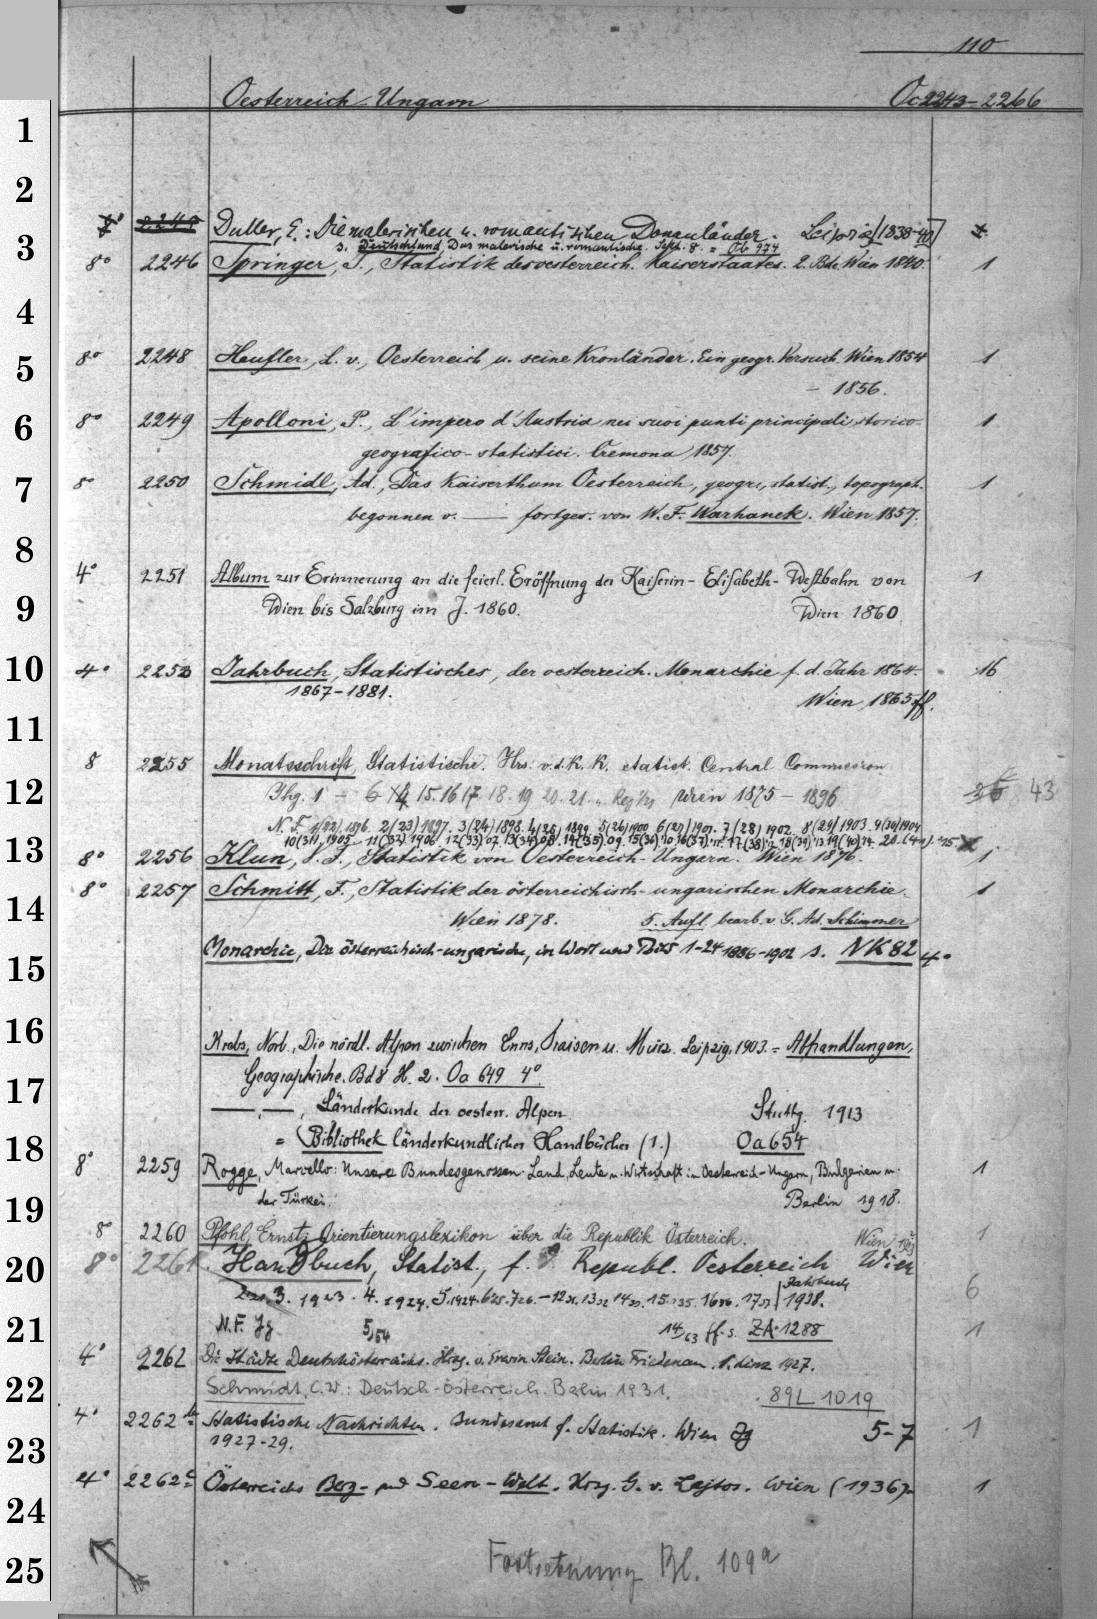 110
Oesterreich-Ungarn Oc 2243-2266
1
2
Duller, E.: Die malerischen u. romantischen Donauländer. Leipzig [1838-40]
3
s. Deutschland, Das malerische u. romantische. Sekt. 8. = Ob 974
8° 2246 Springer, J., Statistik des oesterreich. Kaiserstaates. 2 Bde. Wien 1840. 1
4
5
8° 2248 Heufler, L. v., Oesterreich u. seine Kronländer. Ein geogr. Versuch. Wien 1854 1
- 1856.
6
8° 2249 Apolloni, P., L'impero d'Austria nei suoi punti principali storico- 1
geografico-statistici. Cremona 1857.
7
8° 2250 Schmidl, Ad., Das Kaiserthum Oesterreich, geogr., statist., topograph. 1
begonnen v. — fortges. von W. F. Warhanek. Wien 1857.
8
4° 2251 Album zur Erinnerung an die feierl. Eröffnung der Kaiserin-Elisabeth-Westbahn von 1
9
Wien bis Salzburg im J. 1860. Wien 1860
10
4° 2253 Jahrbuch, Statistisches, der oesterreich. Monarchie f. d. Jahr 1864. 16
1867-1881. Wien 1865 ff.
11
8 2255 Monatsschrift, Statistische. Hrs. v. d. K. K. statist. Central Commission
12
Jhg. 1 - 15. 16 17. 18. 19 20. 21. Wien 1875 - 1896 43
N. F. 1/(22) 1896. 2/(23) 1897. 3(24) 1898. 4(25) 1899. 5(26) 1900 6(27) 1901. 7/(28) 1902. 8(29) 1903. 9(30) 1904
10(31), 1905 11(32) 1906 12(33) 07. 13(34) 08. 14(35) 09. 15(36) 10. 16(37) 11. 17(38) 12. 18(39) 13 19(40) 14
13
8° 2256 Klun, Statistik von Oesterreich-Ungarn. Wien 1876. 1
8° 2257 Schmitt, F., Statistik der österreichisch-ungarischen Monarchie. 1
14
Wien 1878. 5. Aufl. bearb. v. G. Ad. Schimmer
Monarchie, Die österreichisch-ungarische, in Wort und Bild 1-24 1886-1902 s. NK 82 4°
15
16
Krebs, Norb., Die nördl. Alpen zwischen Enns, Traisen u. Mürz. Leipzig, 1903. = Abhandlungen,
Geographische. Bd 8 H. 2. Oa 649 4°
17
—, —, Länderkunde der oesterr. Alpen Stuttg. 1913
18
= (Bibliothek länderkundlicher Handbücher (1.) Oa 654
8° 2259 Rogge, Marcello: Unsere Bundesgenossen. Land, Leute u. Wirtschaft in Oesterreich-Ungarn, Bulgarien u. 1
19
der Türkei. Berlin 1918.
8° 2260 Pfohl, Ernst: Orientierungslexikon über die Republik Österreich. Wien 1
20
8° 2261 Handbuch, Statist., f. d. Republ. Oesterreich Wien
3. 1923. 4. 1924. 5. 1924. 6 25. 7 26. - 12 31. 13 32 14 33. 15. 35. 16 36. 17 37 | Jahrbuch 1938. 6
21
N. F. Jg 5/54 14/63 ff. s. ZA 1288 1
4° 2262 Die Städte Deutschösterreichs. Hrsg. v. Erwin Stein. Berlin Friedenau. 1. Linz 1927.
22
Schmidt, C. W.: Deutsch-österreich. Berlin 1931. 89L 1019
4° 2262 b Statistische Nachrichten. Bundesamt f. Statistik. Wien Jg 5-7 1
23
1927-29.
4° 2262 c Österreichs Berg- und Seen-Welt. Hrsg. G. v. Lejtos. Wien (1936). 1
24
25
Fortsetzung Bl. 109a